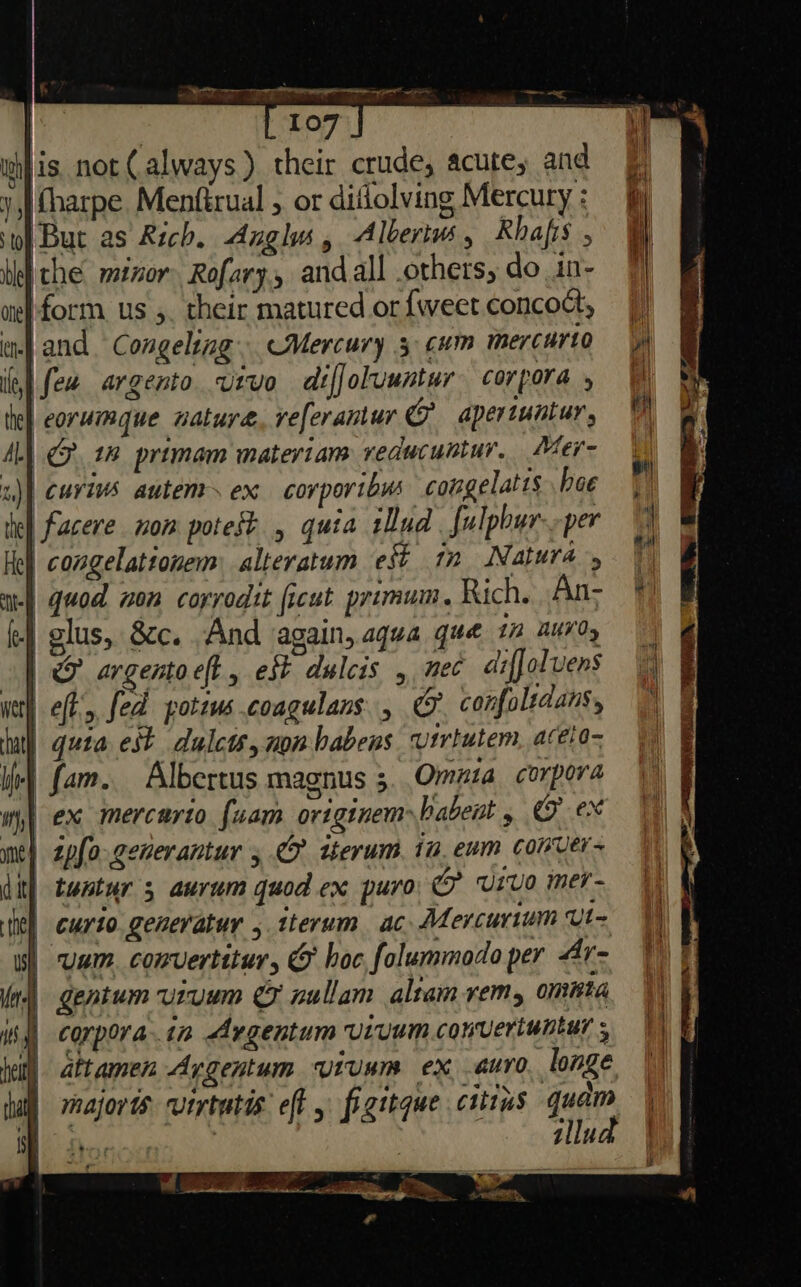 [ 107 ]
is not (always) their crude, acute, and
ſharpe Menſtrual, or diſſolving Mercury:
But as Rich. Anglus, Albertus, Rhaſis,
the minor Roſary, and all others, do in-
form us, their matured or ſweet concoct,
and Congeling Mercury; cum mercurio
ſeu argento vivo diſſolvuntur corpora,
eorumque naturæ referantur & aperiuntur,
& in primam materiam reducuntur. Mer-
curius autem ex corporibus congelatis hoc
facere non poteſt, quia illud ſulphur per
congelationem alteratum eſt in Natura,
quod non corrodit ſicut primum. Rich. An-
glus, &c. And again, aqua quæ in auro,
& argento eſt, eſt dulcis, nec diſſolvens
eſt, ſed potius coagulans, & conſolidans,
quia eſt dulcis, non habens virtutem aceto-
ſam. Albertus magnus; Omnia corpora
ex mercurio ſuam originem habent, & ex
ipſo generantur, & iterum in eum conver-
tuntur; aurum quod ex puro & vivo mer-
curio generatur, iterum ac Mercurium vi-
vum convertitur, & hoc ſolummodo per Ar-
gentum vivum & nullam aliam rem, omnia
corpora in Argentum vivum convertuntur;
attamen Argentum vivum ex auro longe
majoris virtutis eſt, figitque citius quàm
illud